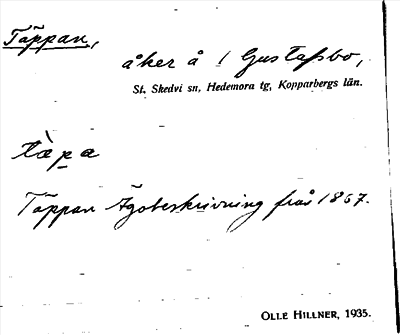 Täppan,
åker å 1 Gustafsbo,
St. Skedvi sn, Hedemora tg, Kopparbergs län.
tàpa
Täppan Ägobeskrivning från 1857.
OLLE HILLNER, 1935.